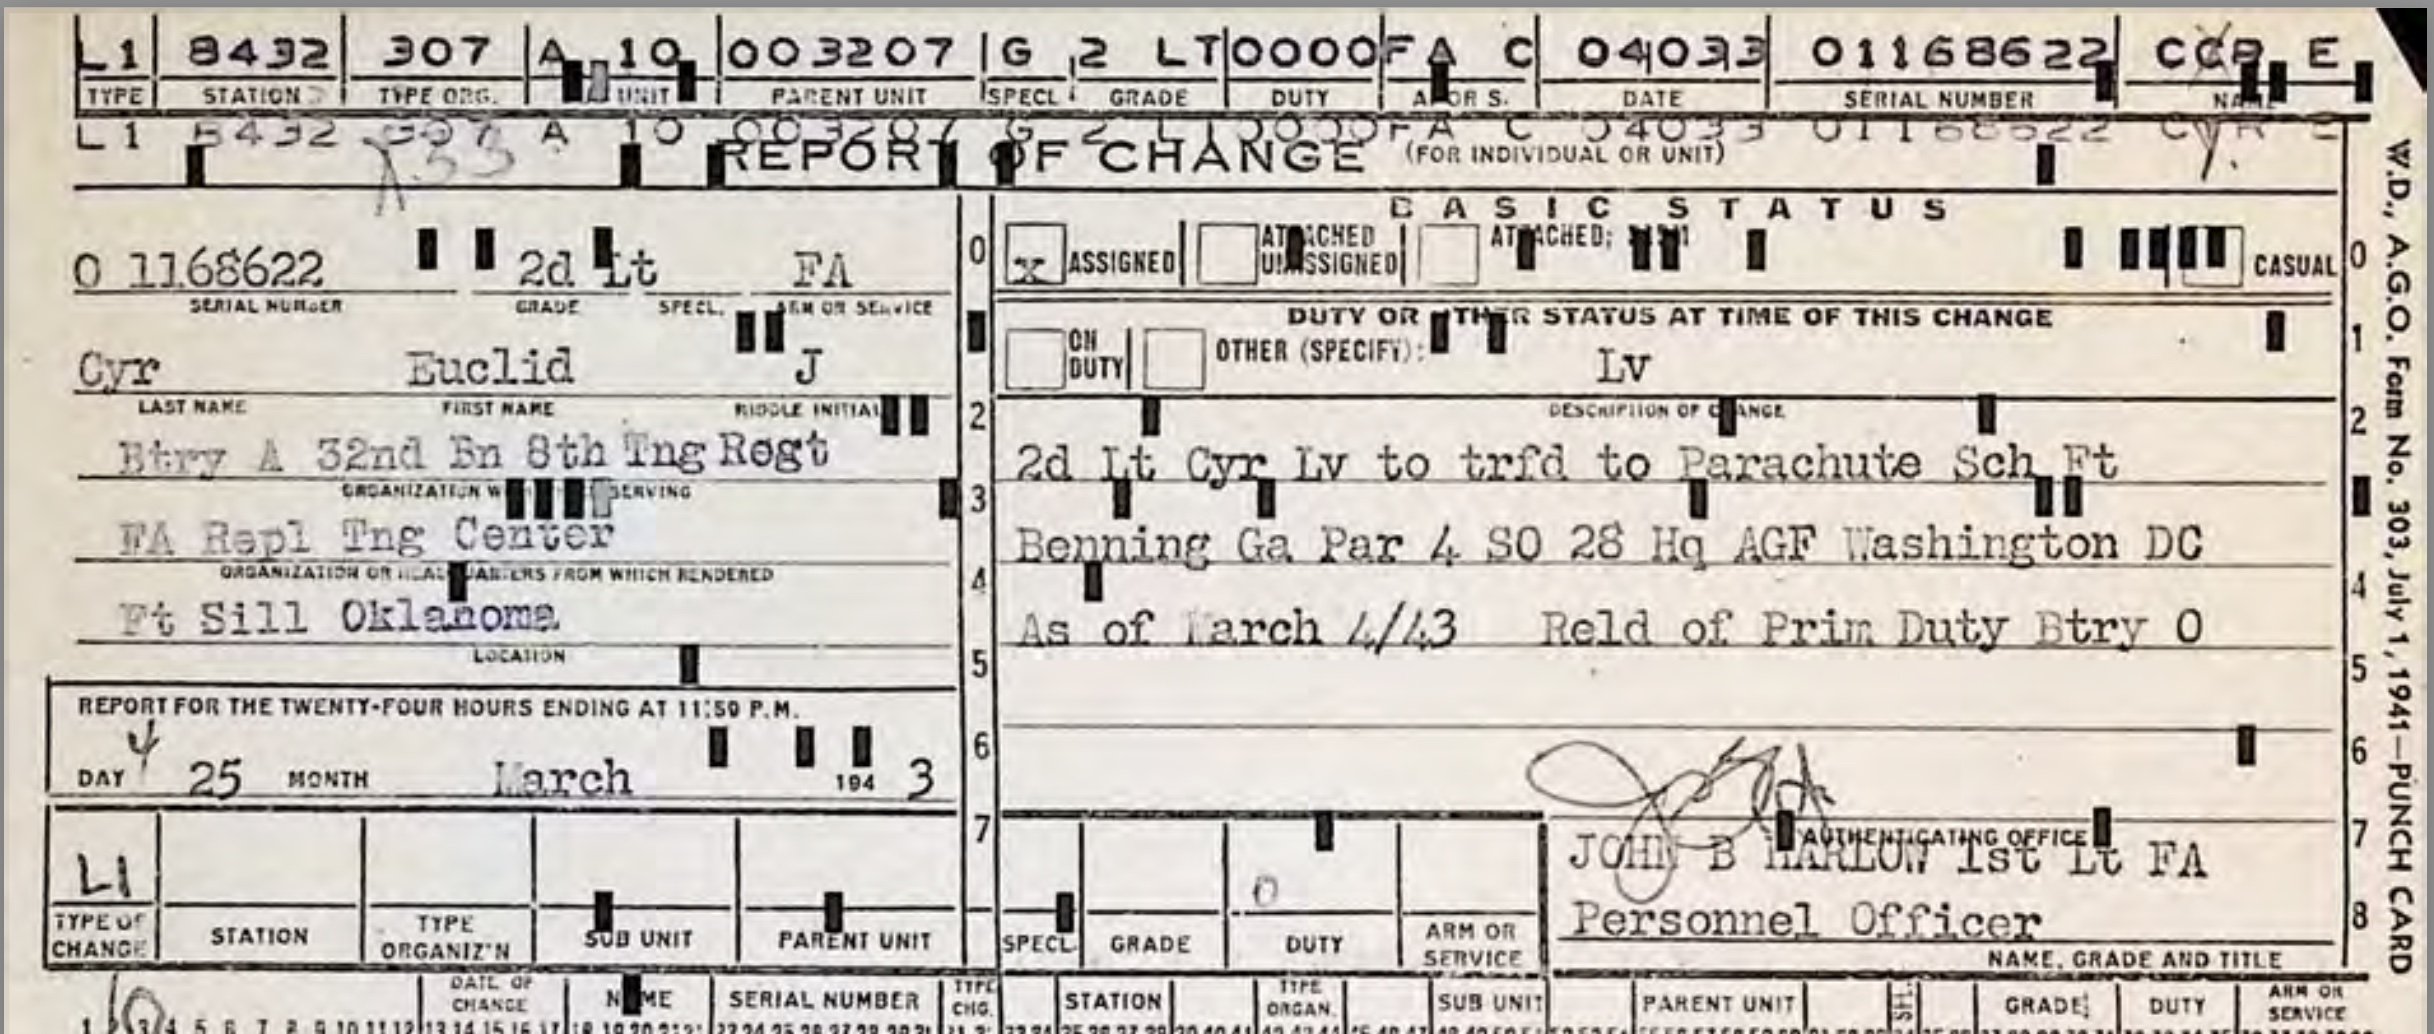 L1 8432 307 A 10 003207 G 2 LT 0000 FA C 04033 01168622 E
TYPE STATION TYPE ORG. UNIT PARENT UNIT SPECL GRADE DUTY DATE SERIAL NUMBER NAME
L1 8432 307 A 10 003207 G 2 LT 0000 FA C 04033 01168622 CYR E
REPORT OF CHANGE (FOR INDIVIDUAL OR UNIT)
BASIC STATUS
O 1168622 2d Lt FA
SERIAL NUMBER GRADE SPECL. ARM OR SERVICE
x ASSIGNED ATTACHED UNASSIGNED ATTACHED; CASUAL
0 0
Cyr Euclid J
LAST NAME FIRST NAME MIDDLE INITIAL
DUTY OR OTHER STATUS AT TIME OF THIS CHANGE
ON DUTY OTHER (SPECIFY): Lv
1
DESCRIPTION OF CHANGE
2 2
Btry A 32nd Bn 8th Tng Regt
ORGANIZATION SERVING
2d Lt Cyr Lv to trfd to Parachute Sch Ft
3
FA Repl Tng Center
ORGANIZATION OR HEADQUARTERS FROM WHICH RENDERED
Benning Ga Par 4 SO 28 Hq AGF Washington DC
4 4
Ft Sill Oklahoma
LOCATION
As of March 4/43 Reld of Prim Duty Btry O
5 5
REPORT FOR THE TWENTY-FOUR HOURS ENDING AT 11:59 P.M.
4
DAY 25 MONTH March 194 3
6 6
7 7
L1
TYPE OF CHANGE STATION TYPE ORGANIZ'N SUB UNIT PARENT UNIT SPECL. GRADE DUTY ARM OR SERVICE
0
AUTHENTICATING OFFICE
JOHN B HARLOW 1st Lt FA
Personnel Officer
8
NAME, GRADE AND TITLE
DATE OF CHANGE NAME SERIAL NUMBER TYPE CHG. STATION TYPE ORGAN. SUB UNIT PARENT UNIT SH. GRADE DUTY ARM OR SERVICE
W.D., A.G.O. Form No. 303, July 1, 1941—PUNCH CARD